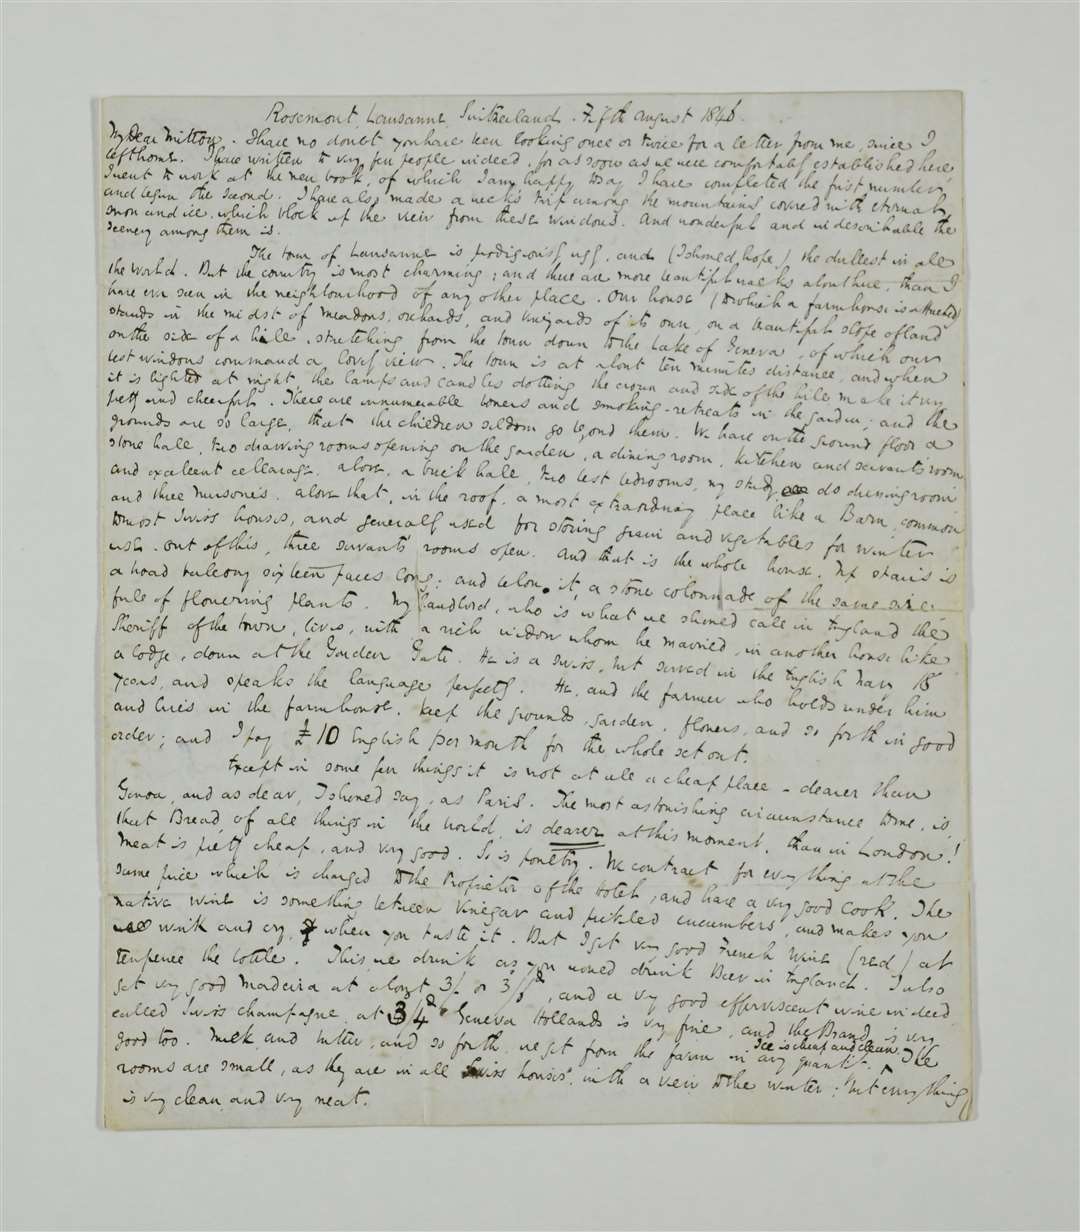 Rosemont, Lausanne, Switzerland. Fifth August 1846.
My Dear Mitton. I have no doubt you have been looking once or twice for a letter from me, since I
left home. I have written to very few people indeed, for as soon as we were comfortably established here
I went to work at the new book, of which I am happy to say I have completed the first number,
and begun the second. I have also made a week's trip among the mountains covered with eternal
snow and ice, which block up the view from these windows. And wonderful and indescribable the
scenery among them is.
The town of Lausanne is prodigiously ugly, and (I should hope) the dullest in all
the world. But the country is most charming; and there are more beautiful walks about here, than I
have ever seen in the neighbourhood of any other place. Our house (to which a farmhouse is attached)
stands in the midst of meadows, orchards, and vineyards of its own, on a beautiful slope of land
on the side of a hill, stretching from the town down to the Lake of Geneva, of which our
best windows command a lovely view. The town is at about ten minutes distance, and when
it is lighted at night, the lamps and candles dotting the crown and side of the hill make it very
pretty and cheerful. There are innumerable bowers and smoking-retreats in the garden; and the
grounds are so large, that the children seldom go beyond them. We have on the ground floor a
stone hall, two drawing rooms opening on the garden, a dining room, kitchen and servants' room,
and excellent cellarage. above, a brick hall, two best bedrooms, my study, do dressing room
and three nurseries. above that, in the roof, a most extraordinary place like a Barn, common
to most Swiss houses, and generally used for storing grain and vegetables for winter
use. Out of this, three servants' rooms open. And that is the whole house. Up stairs is
a broad balcony sixteen paces long; and below it, a stone colonnade of the same size
full of flowering plants. My landlord, who is what we should call in England the
Sheriff of the town, lives, with a rich widow whom he married, in another house like
a lodge, down at the Garden Gate. He is a Swiss, but served in the English Navy 18
years, and speaks the language perfectly. He, and the farmer who holds under him
and lives in the farmhouse, keep the grounds, garden, flowers, and so forth in good
order; and I pay £10 English per month for the whole set out.
Except in some few things it is not at all a cheap place - dearer than
Genoa, and as dear, I should say, as Paris. The most astonishing circumstance to me, is,
that Bread, of all things in the world, is dearer at this moment, than in London!
Meat is pretty cheap, and very good. So is poultry. We contract for everything at the
same price which is charged to the Proprietor of the Hotel, and have a very good cook. The
native wine is something between vinegar and pickled cucumbers, and makes you
wink and cry, when you taste it. But I get very good French wine (red) at
tenpence the bottle. This we drink as you would drink Beer in England. I also
get very good Madeira at about 3/- or 3/6d, and a very good effervescent wine indeed
called Swiss champagne, at 3/4d. Geneva Hollands is very fine, and the Brandy is very
good too. Milk, and butter, and so forth, we get from the farm in any quantity. Ice is cheap and clean. The
rooms are small, as they are in all Swiss houses, with a view to the winter; but everything
is very clean, and very neat.